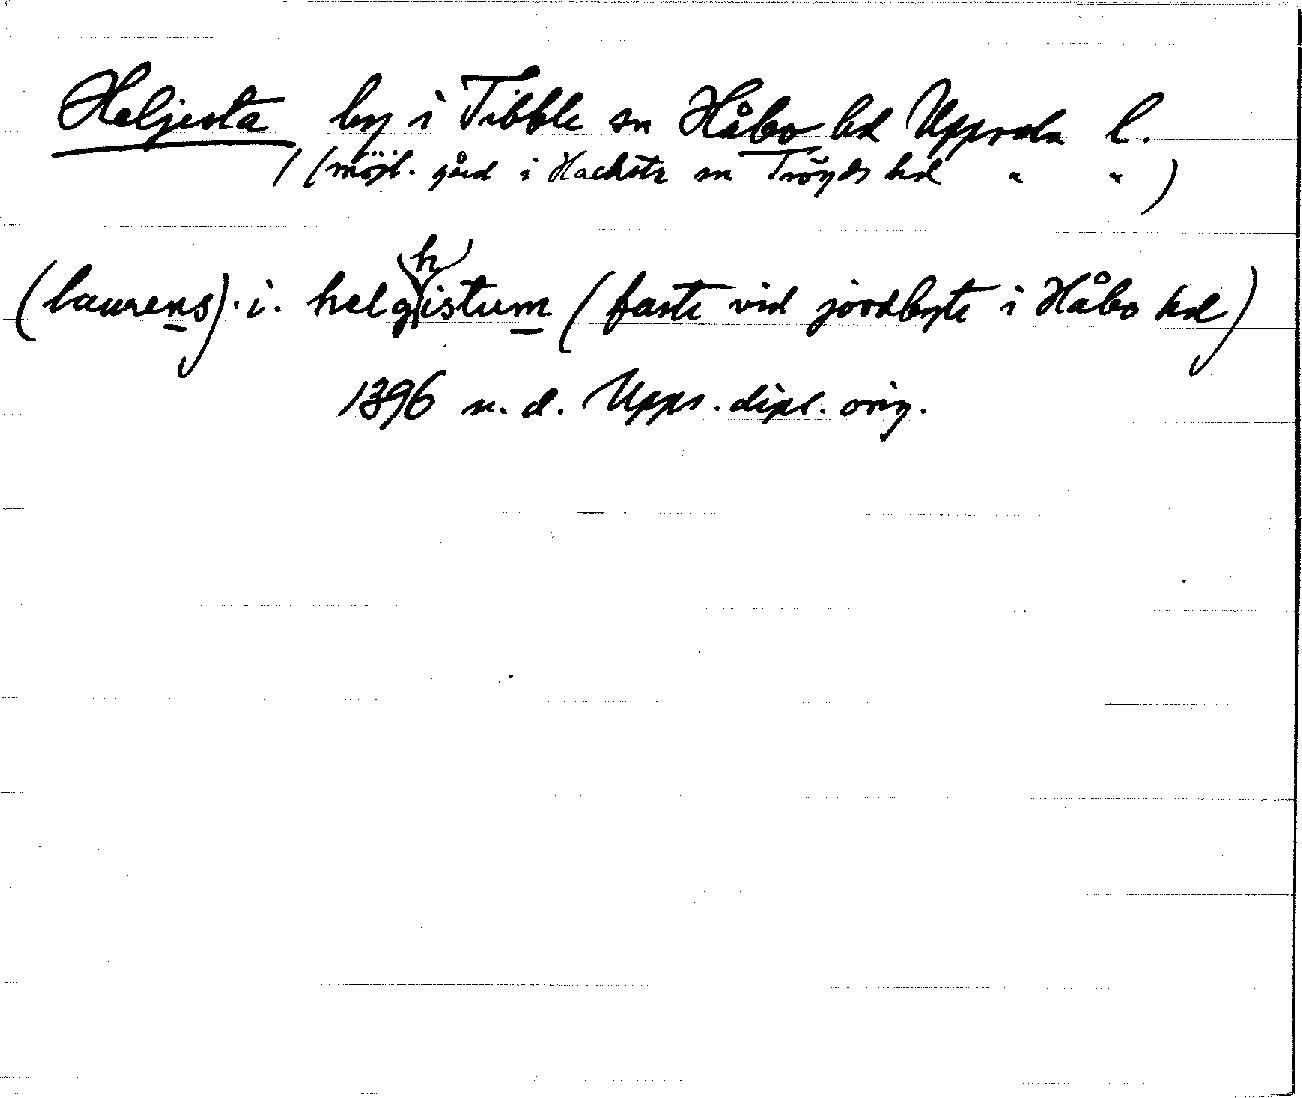 Heljesta by i Tibble sn Håbo hd Uppsala l.
/(möjl. gård i Hacksta sn Trögds hd " ")
(laurens). i. helg(h)istum (faste vid jordbyte i Håbo hd)
1396 u. d. Upps. dipl. orig.